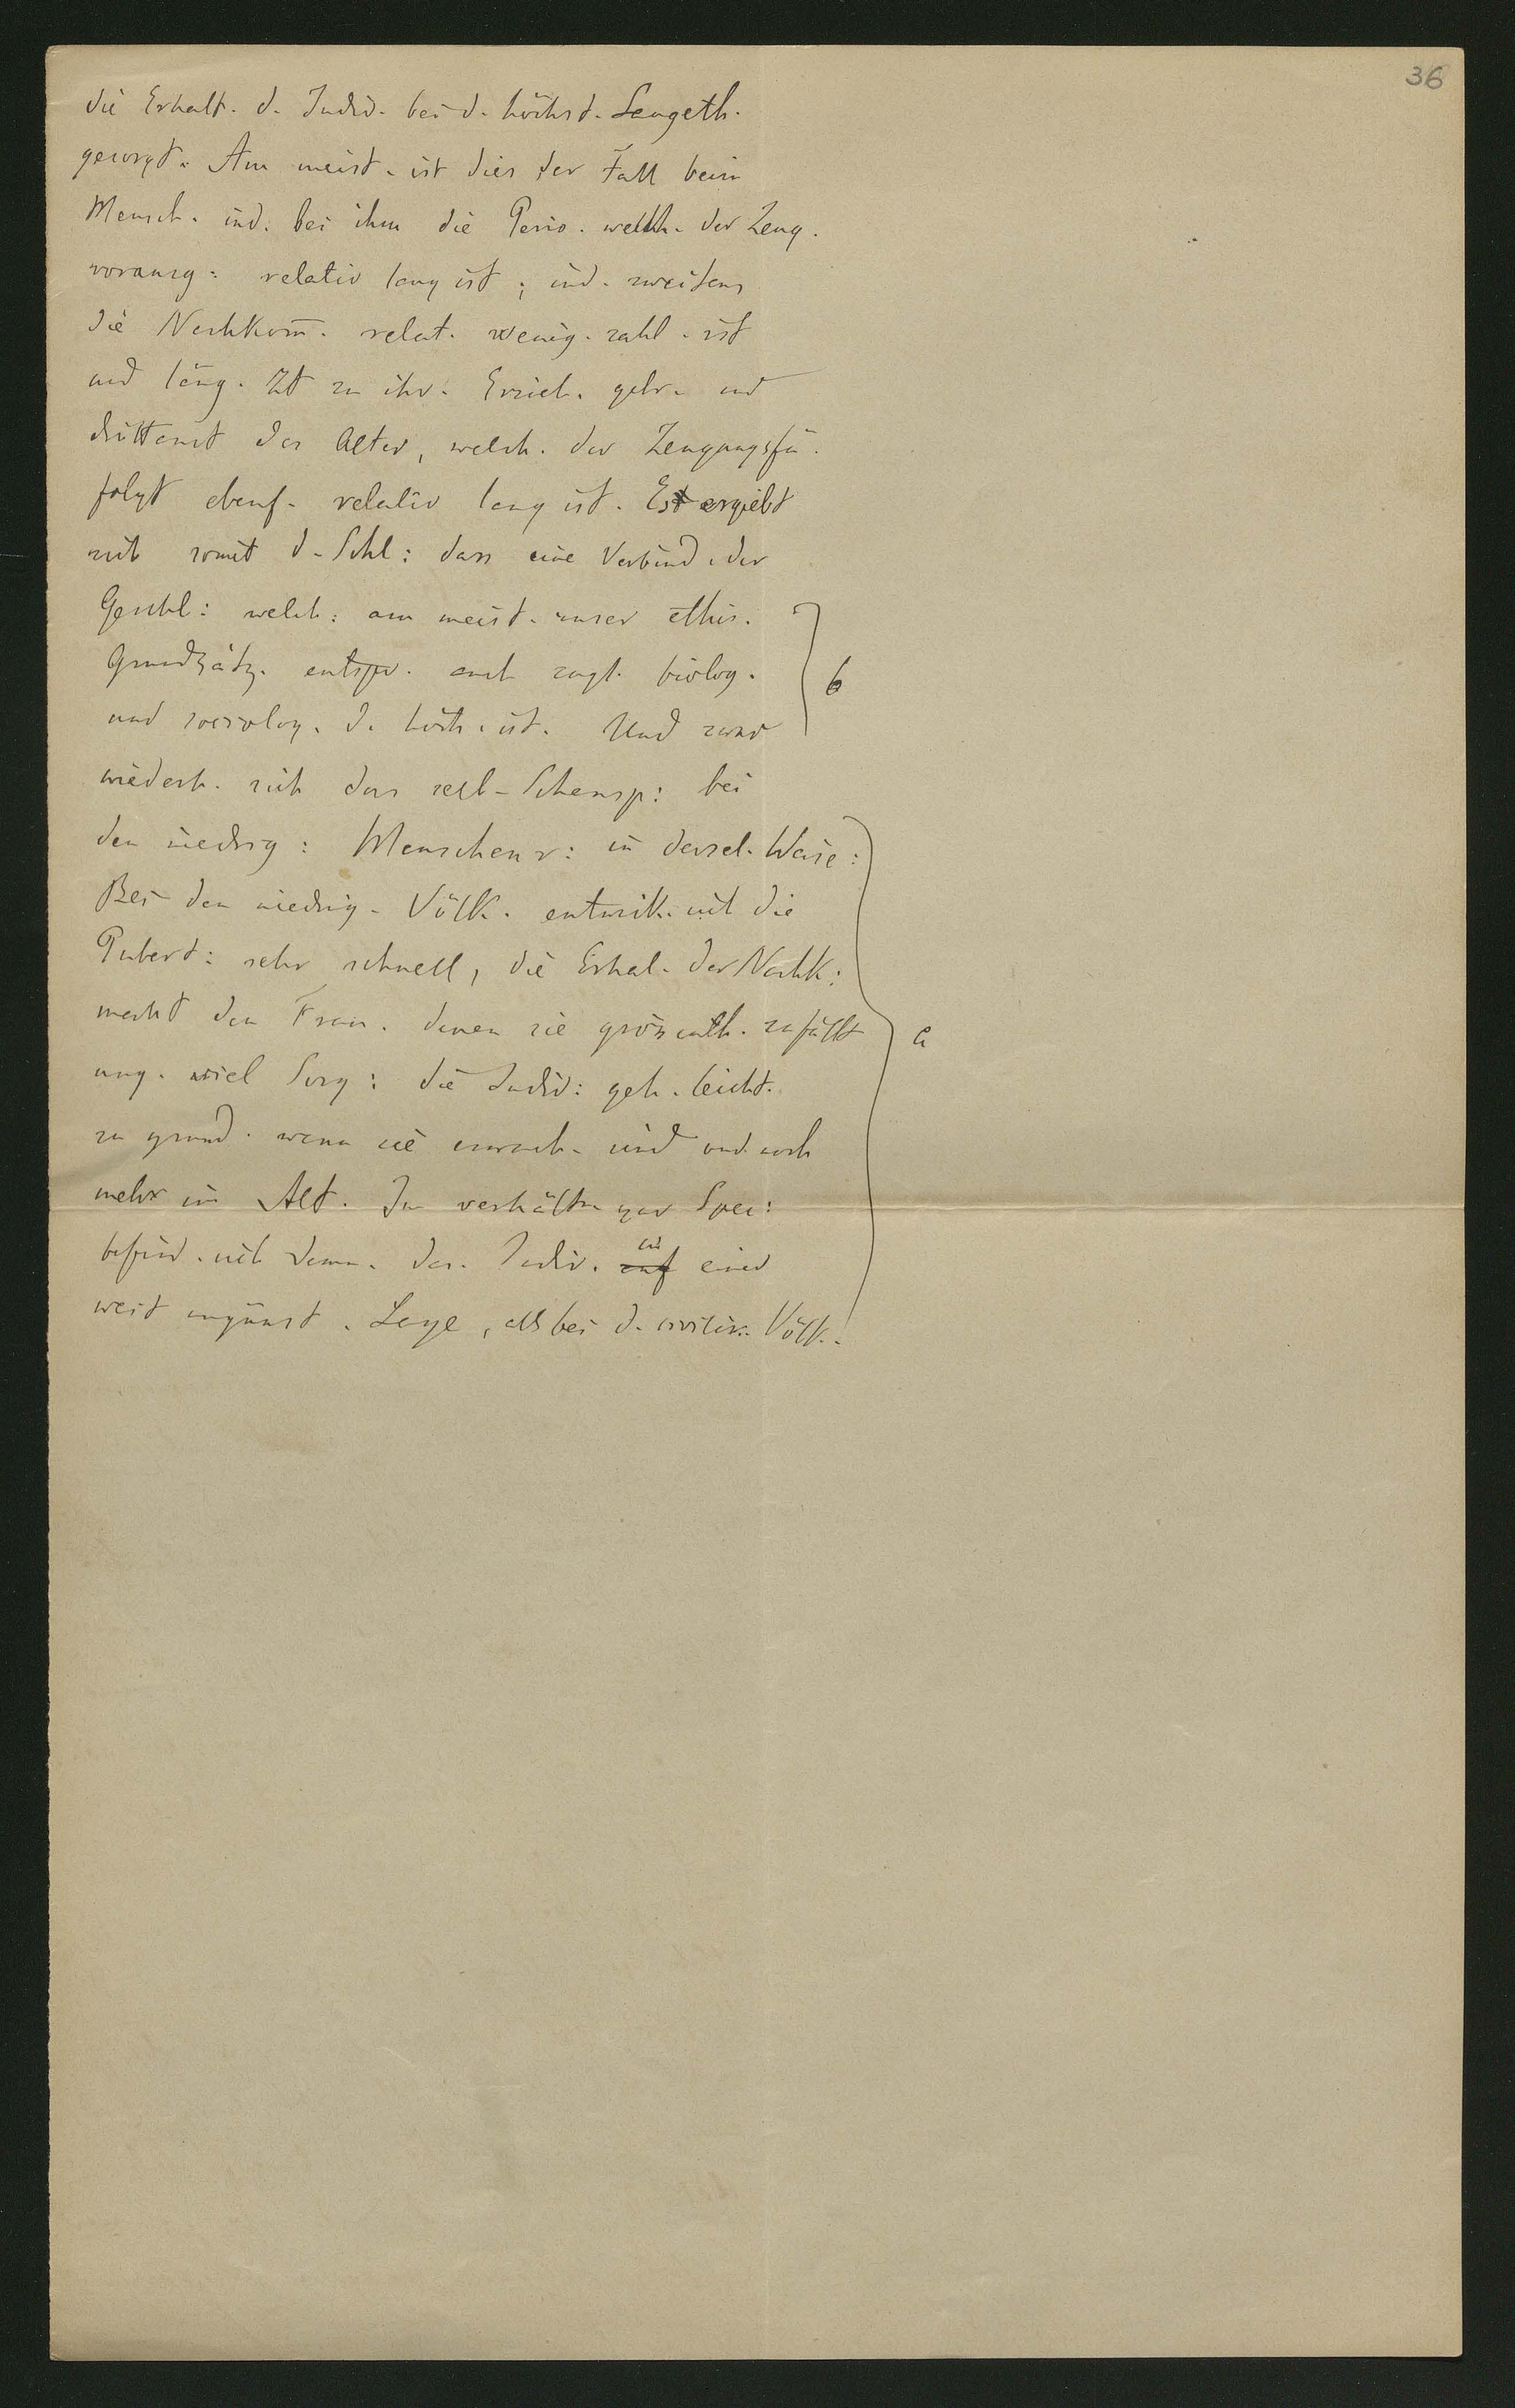 36
die Erhalt. d. Indiv. bei d. höchst. Säugeth.
gesorgt. Am meist. ist dies der Fall beim
Mensch. ind. bei ihm die Perio. welch. der Zeug.
vorausg: relativ lang ist; ind. zweitens
die Nachkom̄. relat. wenig. zahl. ist
und läng. Zt zu ihr. Erzieh. gebr. und
drittens das Alter, welch. der Zeugungsfä.
folgt ebenf. relativ lang ist. Es ergiebt
sich somit d. Schl: dass eine Verbind. der
Geschl: welch: am meist. unser ethis.
Grundsätz. entspr. auch zugl. biolog. b
und sociolog. d. höch. ist. Und zwar
wiederh. sich das selb. Schausp: bei
den niedrig: Menschenr: in dersel. Weise:
Bei den niedrig. Völk. entwik. sich die
Pubert: sehr schnell, die Erhal. der Nachk:
macht den Frau. denen sie grösstenth. zufällt a
ung. viel Sorg: die Indiv: geh. leicht.
zu grund. wenn sie erwach. sind und noch
mehr im Alt. Im verhältn. zur Spec:
befind. sich dann. das. Indiv. auf in einer
weit ungünst. Lage, als bei d. civilis. Völk.